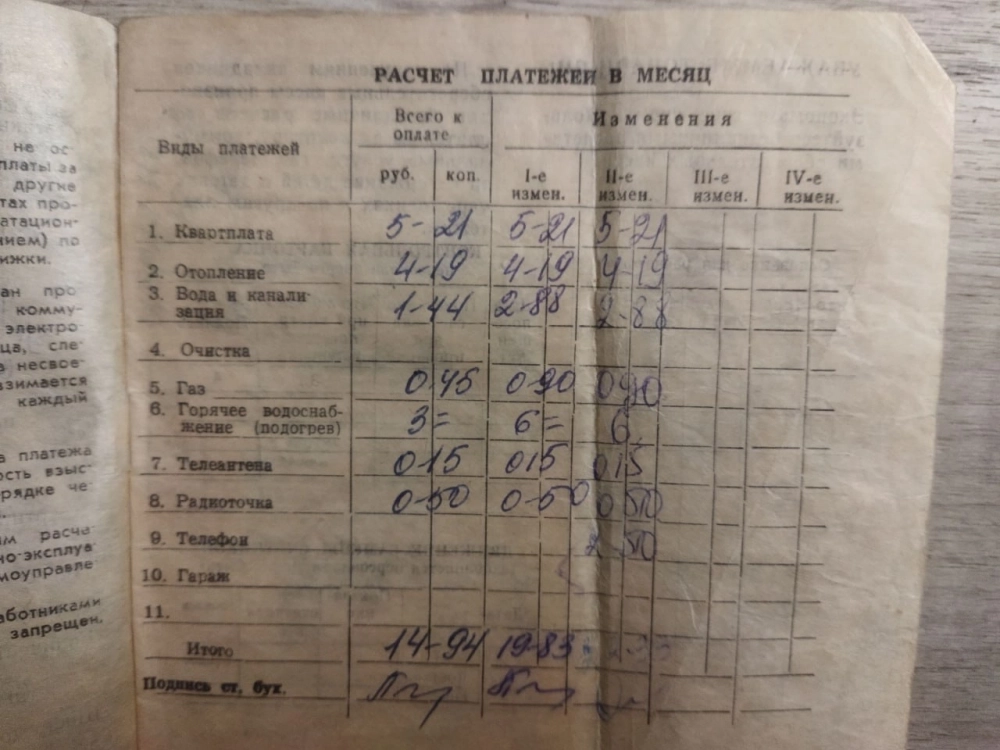 не ос-
платы за
другие
тах про-
атацион-
нием) по
ижки.
ан про
комму-
электро-
ца, спе-
несвое-
взимается
каждый
а платежа
ость взыс-
рядке че-
им расче
но-эксплуа
моуправле
аботниками
запрещен.
РАСЧЕТ ПЛАТЕЖЕЙ В МЕСЯЦ
Виды платежей Всего к оплате Изменения
руб. коп. I-е измен. II-е измен. III-е измен. IV-е измен.
1. Квартплата 5-21 5-21 5-21
2. Отопление 4-19 4-19 4-19
3. Вода и канали-
зация 1-44 2-88 2-88
4. Очистка
5. Газ 0 45 0-90 0 90
6. Горячее водоснаб-
жение (подогрев) 3= 6= 6
7. Телеантена 0 15 0 15 0 15
8. Радиоточка 0-50 0-50 0 50
9. Телефон 2-50
10. Гараж
11.
Итого 14-94 19-83
Подпись ст. бух.